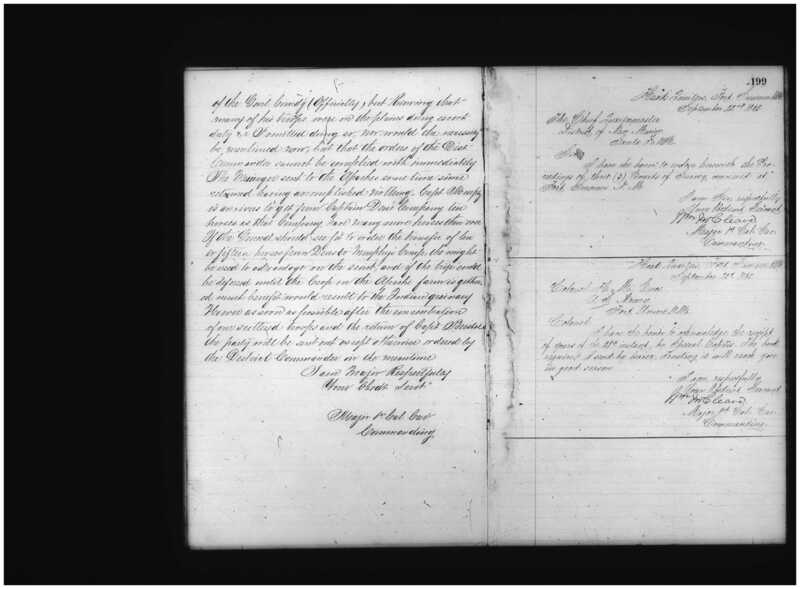 of the Court (Officially) but Knowing that
many of his troops were on the plains doing escort
duty & I omitted doing so, nor would the necessity
be mentioned now, but that the orders of the Dist
Commander cannot be complied with immediately
The Messenger sent to the Apaches some time since
returned having accomplished nothing. Capt
is anxious to get from Captain Company ten
horses as that Company have many more horses than men
If the General should see fit to order the transfer of ten
or fifteen horses from to Comp, they might
be used to advantage on the scout, and if the trip could
be deferred until the Crop on the Apache farm is gather
ed, much benefit would result to the Indians
However as soon as feasible after the concentration
of our scattered troops and the return of Capt
the party will be sent out except otherwise ordered by
the District Commander in the meantime
I am Major Respectfully
Your Obedt Servt
Major 1st Cal Cav
Commanding
199
Head Quarters, Fort Sumner N.M.
September 22nd 1865
The Chief Quartermaster
District of New Mexico
Santa Fe N.M.
Sir
I have the honor to enclose herewith the Pro-
ceedings of three (3) Boards of Survey, convened at
Fort Sumner N.M.
I am Sir, respectfully
Your Obedient Servant
Wm McCleave
Major 1st Cal. Cav.
Commanding
Head Quarters, Fort Sumner N.M.
September 1865
Colonel
U.S. Army
Fort N.M.
Colonel
I have the honor to acknowledge the receipt
of yours of the instant, by Special Express. The book
required I send by bearer, Trusting it will reach you
in good season
I am respectfully
Your Obedient Servant
Wm McCleave
Major 1st Cal. Cav.
Commanding